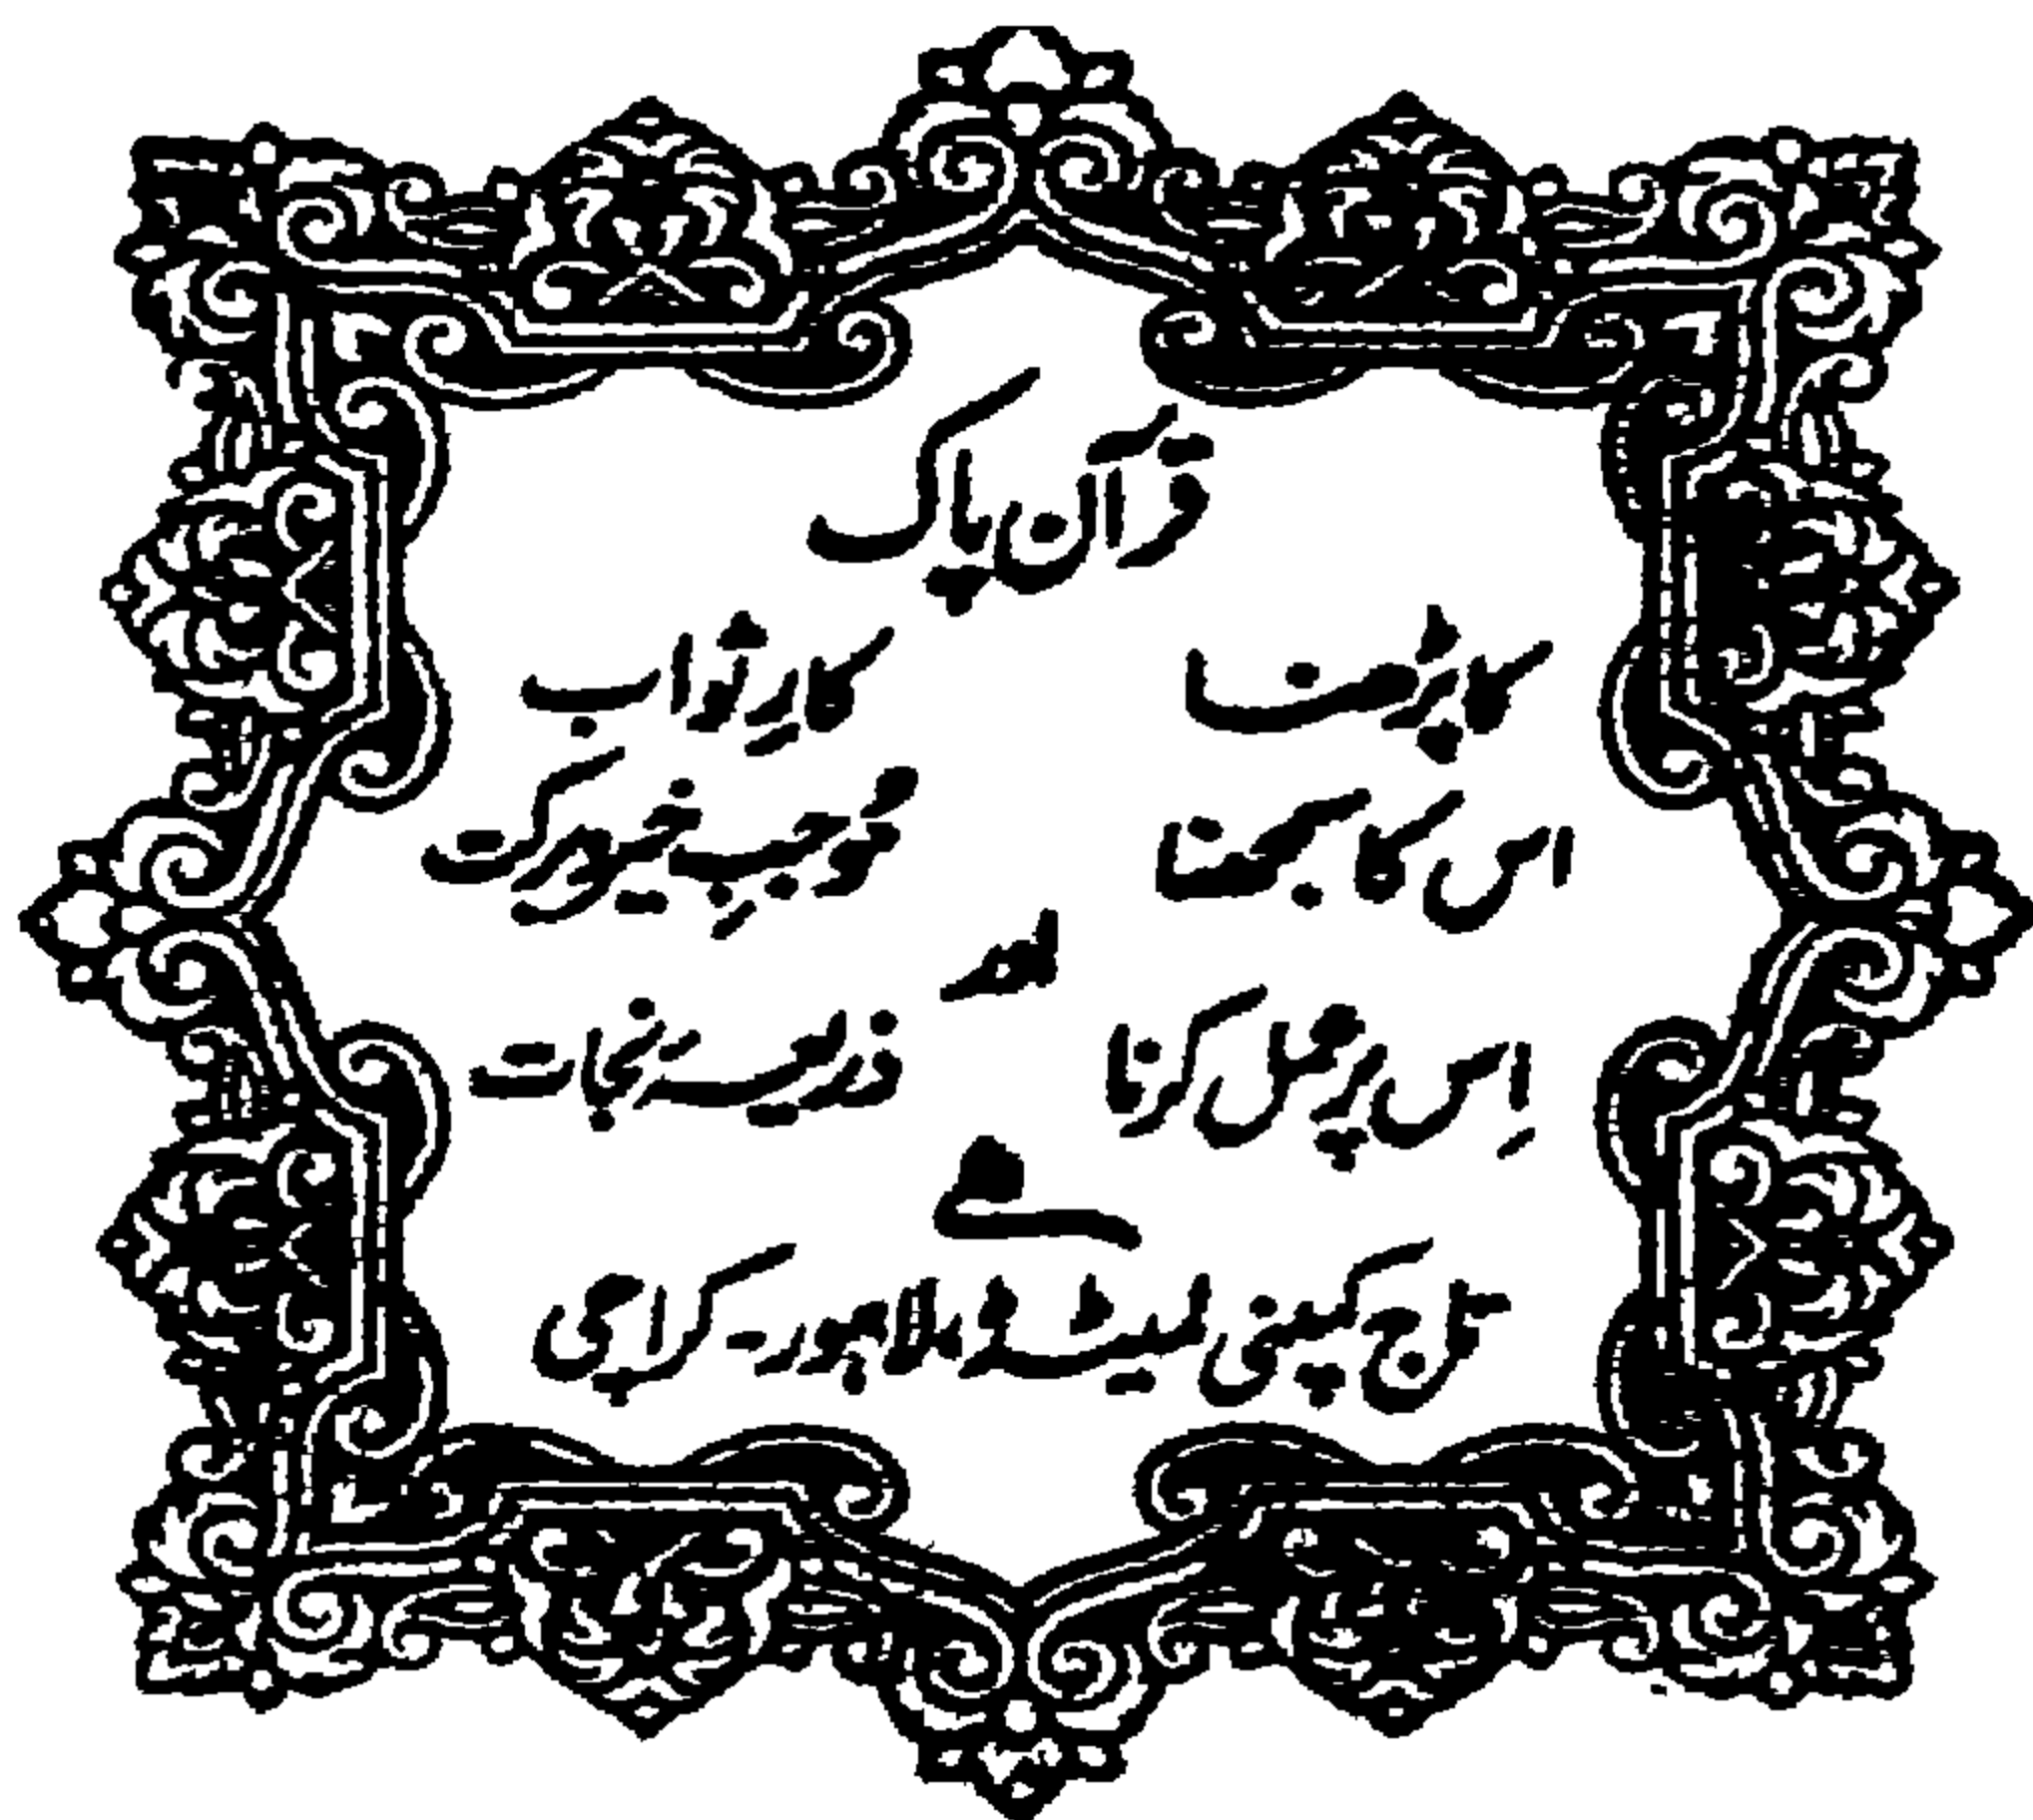 قرآن پاک
کا پڑھنا کارِ ثواب
اس کا سمجھنا موجبِ خیر و برکت
اور
اِس پر عمل کرنا ذریعۂ نجات
ہے
تاج کمپنی لمیٹڈ لاہور۔ کراچی